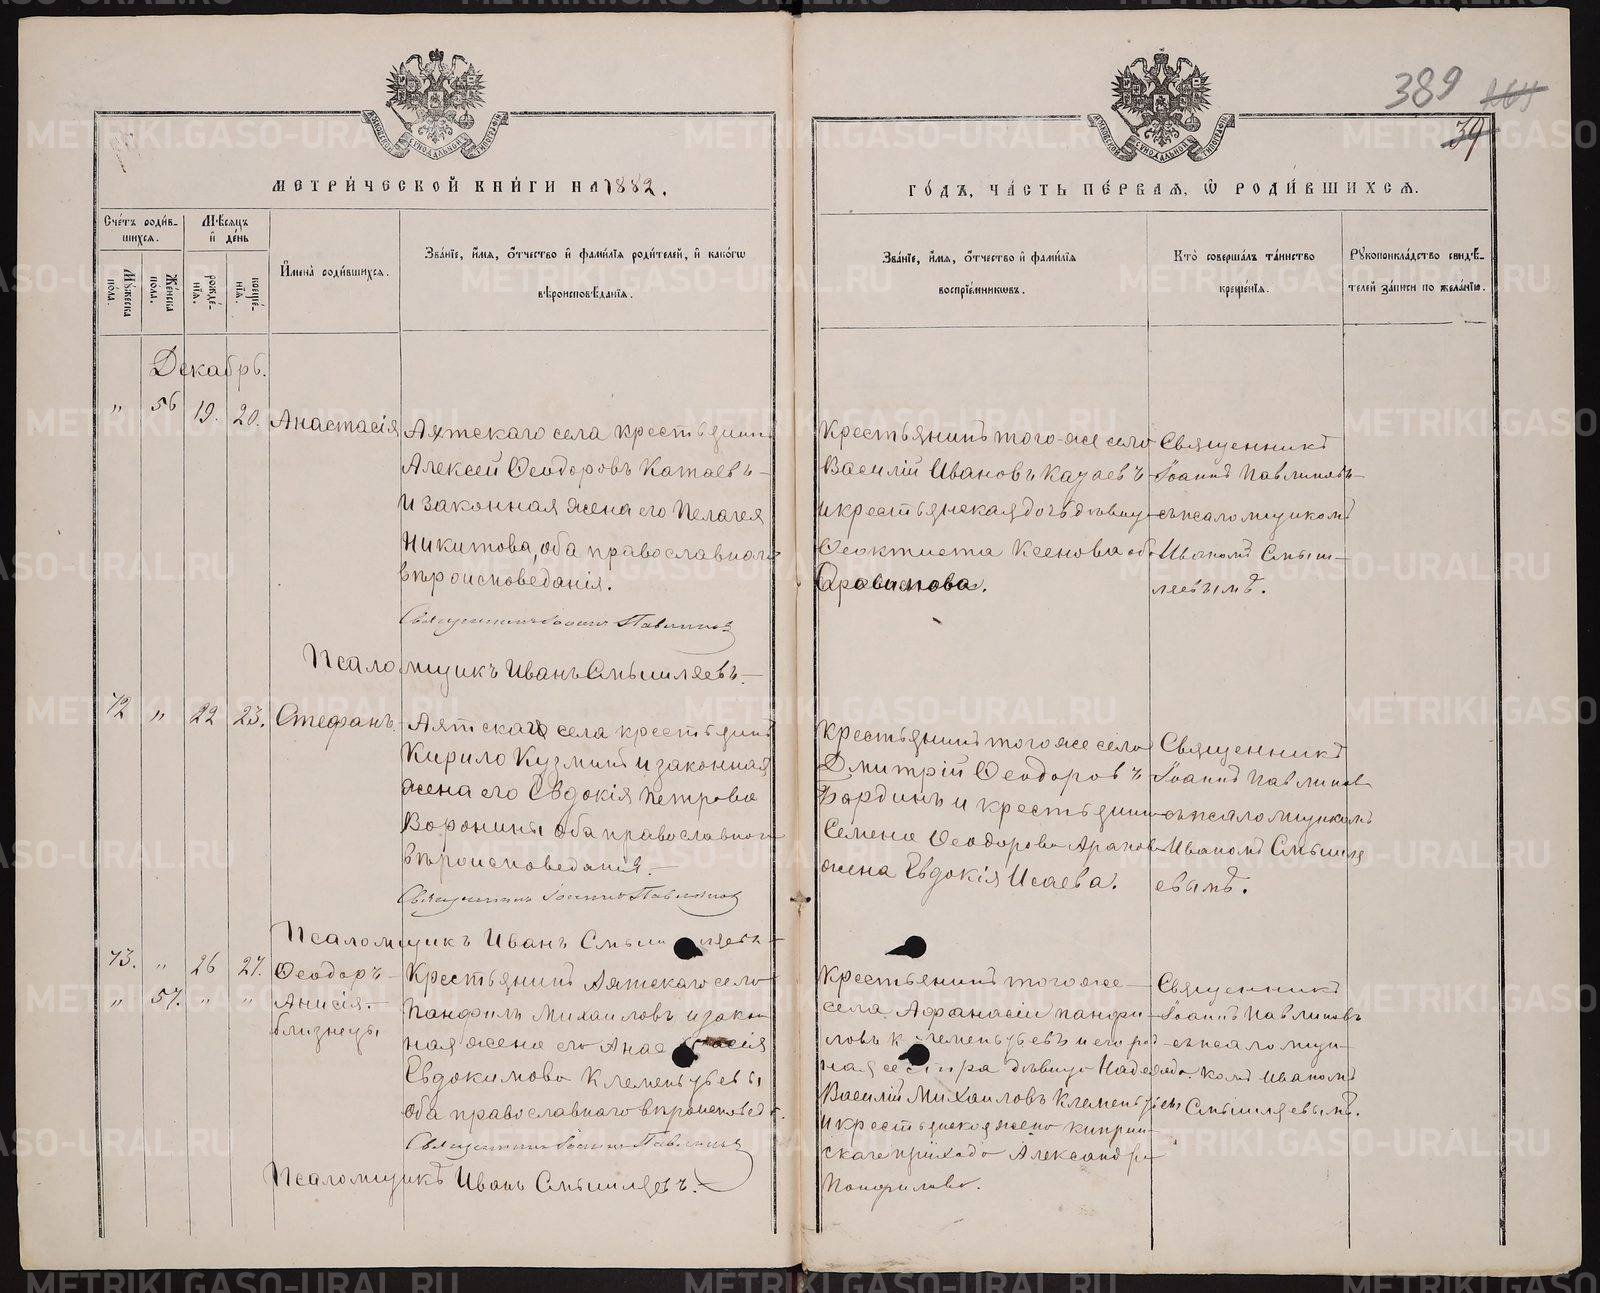 389
39
МЕТРИ́ЧЕСКОЙ КНИ́ГИ НА 1882.
ГО́ДЪ, ЧА́СТЬ ПЕ́РВАЯ, Ѡ҆ РОДИ́ВШИХСЯ.
Сче́тъ роди́в-
шихся.
Мѣ́сяцъ
и҆ де́нь
Мꙋжеска
по́ла.
Же́нска
пола.
рожде́-
нїя.
креще́-
нїя.
И҆мена̀ роди́вшихся.
Зва́нїе, и҆́мя, ѻ҆́тчество и҆ фами́лїя роди́телей, и҆ како́гѡ
вѣроисповѣ́данїя.
Зва́нїе, и҆́мя, ѻ҆́тчество и҆ фами́лїя
воспрїе́мникѡвъ.
Кто̀ соверша́лъ та́инство
креще́нїя.
Рꙋкоприкла́дство свидѣ́-
телей за́писи по жела́нїю.
Декабрь.
" 56 19. 20. Анастасія
Аятскаго села крестьянинъ
Алексей Ѳеодоровъ Катаевъ
и законная жена его Пелагея
Никитова, оба православнаго
вѣроисповеданія.
Священникъ Іоаннъ Павлиновъ
Псаломщикъ Иванъ Смышляевъ.
Крестьянинъ того-же села
Василій Ивановъ
и крестьянская дочь дѣвица
Ѳеоктиста
Священникъ
Іоаннъ Павлиновъ
съ псаломщикомъ
Иваномъ Смыш-
ляевымъ.
72 " 22 23. Стефанъ
Аятскаго села крестьянинъ
Кирило Кузминъ и законная
жена его Евдокія Петрова
Воронины оба православнаго
вѣроисповеданія.
Священникъ Іоаннъ Павлиновъ
Псаломщикъ Иванъ Смышляевъ
Крестьянинъ того же села
Дмитрій Ѳеодоровъ
Бардинъ и крестьянина
Семена Ѳеодорова
жена Евдокія Исаева.
Священникъ
Іоаннъ Павлиновъ
съ псаломщикомъ
Иваномъ Смышля
евымъ.
73. " 26 27. Ѳеодоръ
" 57. " " Анисія.
близнецы
Крестьянинъ Аятскаго села
Панфилъ Михаиловъ и закон
ная жена его Анастасія
Евдокимова Клементьевы
оба православнаго вѣроисповед
Священникъ Іоаннъ Павлиновъ
Псаломщикъ Иванъ Смышляевъ.
Крестьянинъ того же
села Афанасій Панфи
ловъ Клементьевъ и его род
ная сестра дѣвица Надежда.
Василій Михаиловъ Клементьевъ
и крестьянская жена Киприн
скаго прихода Александра
Панфилова.
Священникъ
Іоаннъ Павлиновъ
съ псаломщи-
комъ Иваномъ
Смышляевымъ.
METRIKI.GASO-URAL.RU